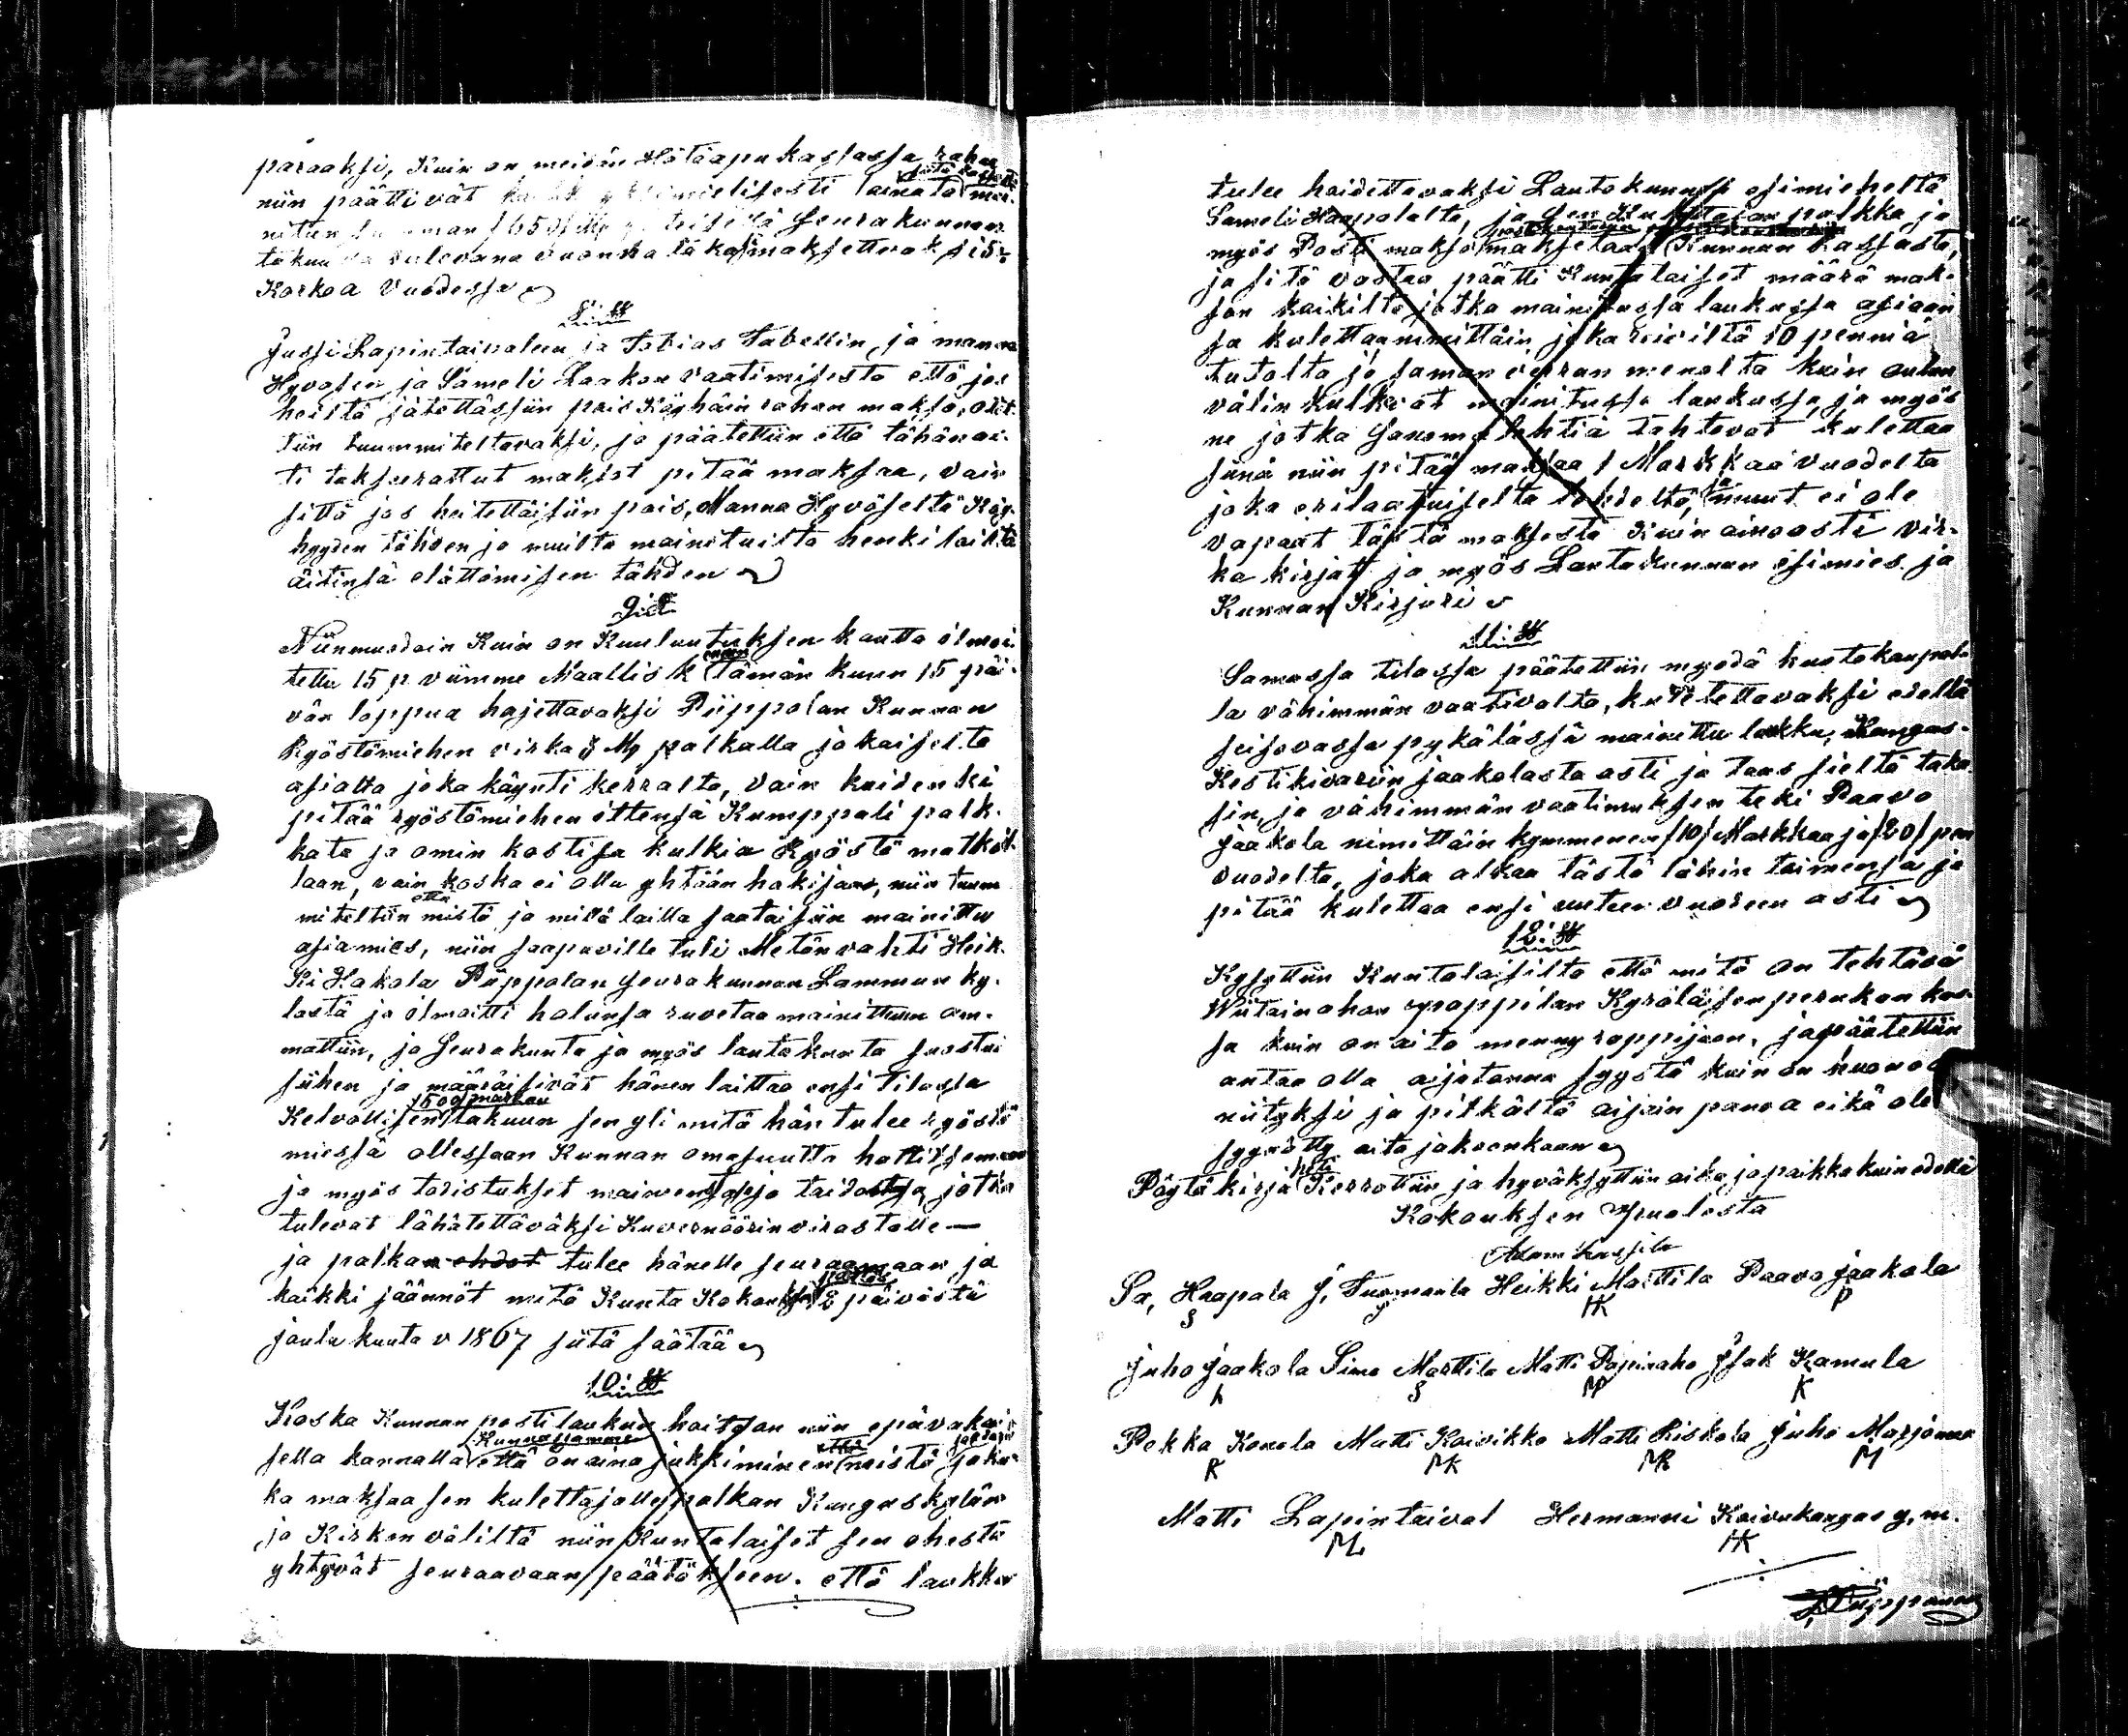 paraaksi, Kuin on meidän Hätäapu kassassa rahaa
niin päättivät yksimielisesti lainata mai-
nitun summan 165 Seurakunnan
maksettavaksi 5
Korkoa Vuodessa
8:§
Jussi Lapintaipaleen ja Tobias Tabellin, ja manna
Hyvösen ja Sameli Laakon vaatimisesta että jos
heistä jätettäisiin pois Köyhäin rahan makso, otet-
tiin tuummiteltavaksi, ja päätettiin että tähänas-
ti takseerattut maksot pitää maksaa, vain
sittä jos heitettäisiin pois, Manna Hyvöseltä Köy-
hyyden tähden ja muilta mainituilta henkilöiltä
äitinsä elättämisen tähden
9:§
Niinmuodoin Kuin on Kuuluutuksen kautta ilmoi-
tettu 15 p viimme Maallisk tämän kuun 15 päi-
vän loppua hajettavaksi Piippolan Kunnan
Ryöstömiehen virka 8 Mk palkalla jokaiselta
asialta joka käynti kerralta, vain kuidenki
pitää ryöstömiehen ittensä Kumppali palk-
kata ja omin kostisa kulkia Ryöstö matkol-
laan, vain koska ei ollu yhtään hakijaa, niin tuum
miteltiin että mistä ja millä lailla saataisiin mainittu
asiamies, niin saapuville tuli Metänvahti Heik-
ki Hakola Piippolan seurakunnan Lammun ky-
lästä ja ilmoitti halunsa ruvetaa mainittuun am-
mattiin, ja Seurakunta ja myös lautakunta suostui
siihen ja määräisivät hänen laittaa ensi tilassa
Kelvollisen 500 markan takuun sen yli mitä hän tulee ryöstö
miessä ollessaan Kunnan omasuutta hallitsemaan
ja myös todistukset maineensa ja taidostaa, jotka
tulevat lähätettäväksi Kuvernöörinvirastolle —
ja palkan ehdot tulee hänelle seuraamaan ja
kaikki jäännöt mitä Kunta Kokouksen päätös 2 päivästä
joulukuuta v 1867 siitä säätää
10:§
Koska Kunnan postilaukun haittan niin epävakai-
sella kannalla Kunnassamme että on aina jukkiminen että meistä joku
ka maksaa sen kulettajalle palkan Kangaskylän
ja Kirkon väliltä niin Kuntalaiset sen ohesta
yhtyvät seuraavaan päätökseen. että laukku
tulee hoidettavaksi Lautakunnan esimieheltä
Sameli Haapalalta, ja sen Kulettajan palkka ja
myös Posti makso maksetaan Kunnan Kassasta,
ja sitä vastaa päätti Kuntalaiset määrä mak-
son kaikilta jotka mainitussa laukussa asioian
sa kulettaa nimittäin joka kirjeiltä 10 penniä
tutolta ja saman verran menolta kuin oulun
välin kulkevat mainitussa laukussa, ja myös
ne jotka Sanoma lehtiä tahtovat kulettaa
siinä niin pitää maksaa 1 Markkaa vuodelta
joka erilaatuiselta lehdeltä, ja muut ei ole
vapaat tästä maksosta Kuin ainoasti vir-
ka kirjat ja myös Lautakunnan esimies ja
Kunnan Kirjuri
11:§
Samassa tilassa päätettiin myödä huutokaupal-
la vähimmän vaativalta, kuletettavaksi edellä
seisovassa pykälässä mainittu laukku, Kangas-
Kestikivariin jaakolasta asti ja taas sieltä taka-
sin, ja vähimmän vaatimuksen teki Paavo
Jaakola nimittäin kymmenen /10/ Markkaa ja /20/ pen
vuodelta, joka alkaa tästä lähin toimensa ja
pitää kulettaa ensi uuteen vuoteen asti
12:§
Kysyttiin Kuntalaisilta että mitä on tehtävä
Wiitainahan grappilan Kyröläisen perukan kans-
sa kuin on aita menny rappijoon, ja päätettiin
antaa olla aijatanna syystä kuin on huonoa
niityksi ja pitkältä aijain panna eikä ole
syynätty aita jakoonkaan
Pöytäkirja heti Kerrottiin ja hyväksyttiin aika ja paikka kuin edellä
Kokouksen Puolesta
Adam Lassila
Sa, Haapala J, Tuomaala Heikki Marttila Paavo Jaakola
S HK P
Juho Jaakola Simo Marttila Matti Papinaho Isak Kamula
S MP K
Pekka Konola Matti Koivikko Matti Riskola Juho Marjomaa
K MK MR M
Matti Lapintaival Hermanni Koivukangas y, m.
ML HK
Piipponen